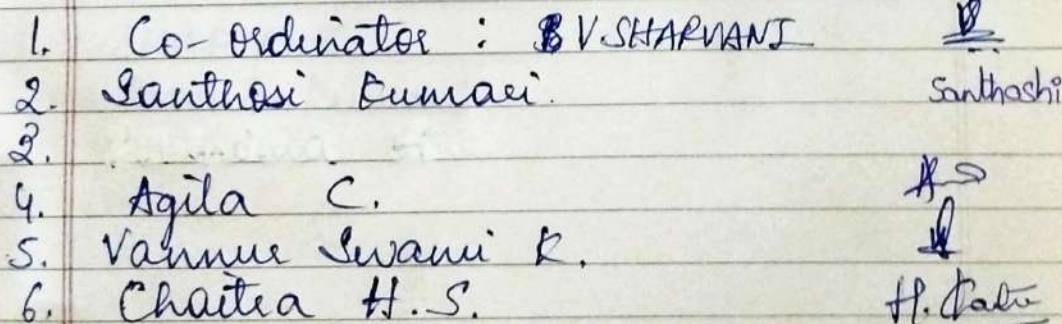 1. Co-ordinator : V.SHARVANI
2. Santhosi Kumari. Santhoshi
3.
4. Agila C.
5. Vannur Swami K.
6. Chaitra H.S. H.